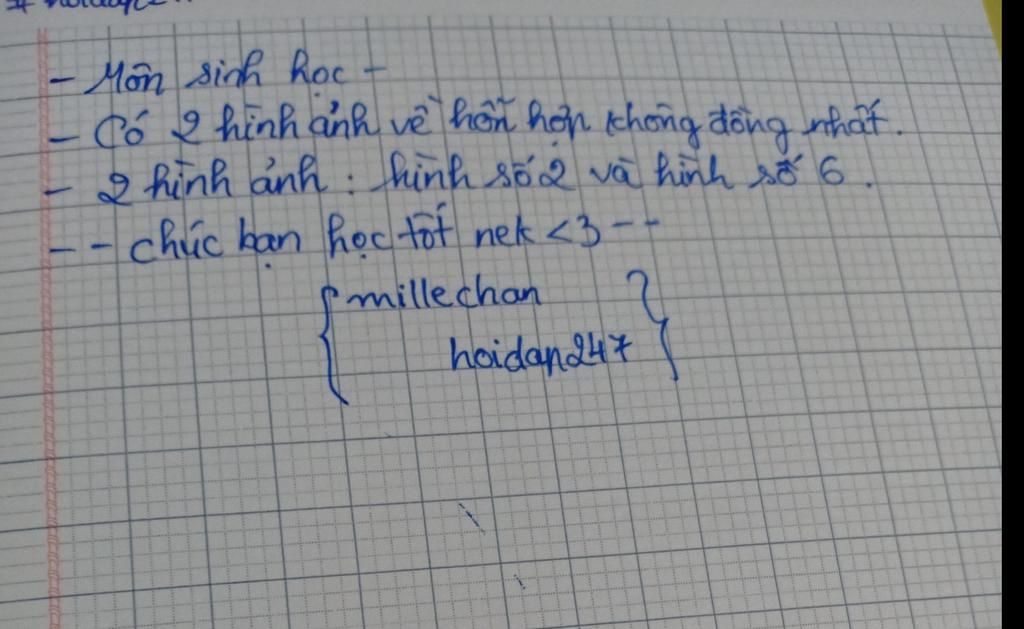 - Môn sinh học -
- Có 2 hình ảnh về hỗn hợp không đồng nhất.
- 2 hình ảnh : hình số 2 và hình số 6.
-- chúc bạn học tốt nek <3 --
{ millechan }
hoidap247